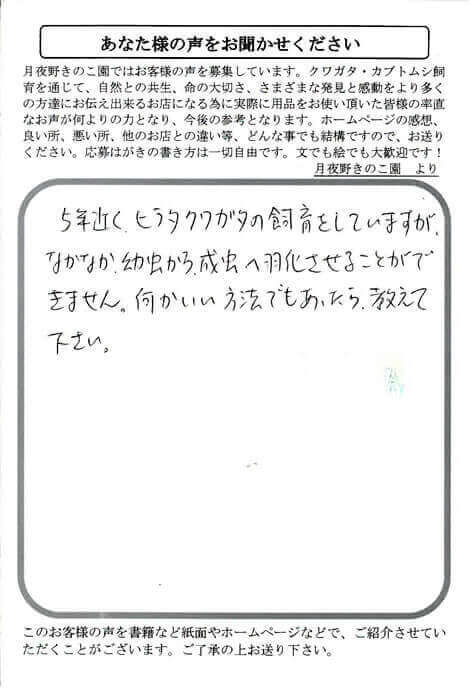 あなた様の声をお聞かせください
月夜野きのこ園ではお客様の声を募集しています。クワガタ・カブトムシ飼
育を通じて、自然との共生、命の大切さ、さまざまな発見と感動をより多く
の方達にお伝え出来るお店になる為に実際に用品をお使い頂いた皆様の率直
なお声が何よりの力となり、今後の参考となります。ホームページの感想、
良い所、悪い所、他のお店との違い等、どんな事でも結構ですので、お送り
ください。応募はがきの書き方は一切自由です。文でも絵でも大歓迎です！
月夜野きのこ園　より
5年近く、ヒラタクワガタの飼育をしていますが、
なかなか、幼虫から、成虫へ羽化させることがで
きません。何かいい方法でもあったら、教えて
下さい。
このお客様の声を書籍など紙面やホームページなどで、ご紹介させてい
ただくことがございます。ご了承の上お送り下さい。